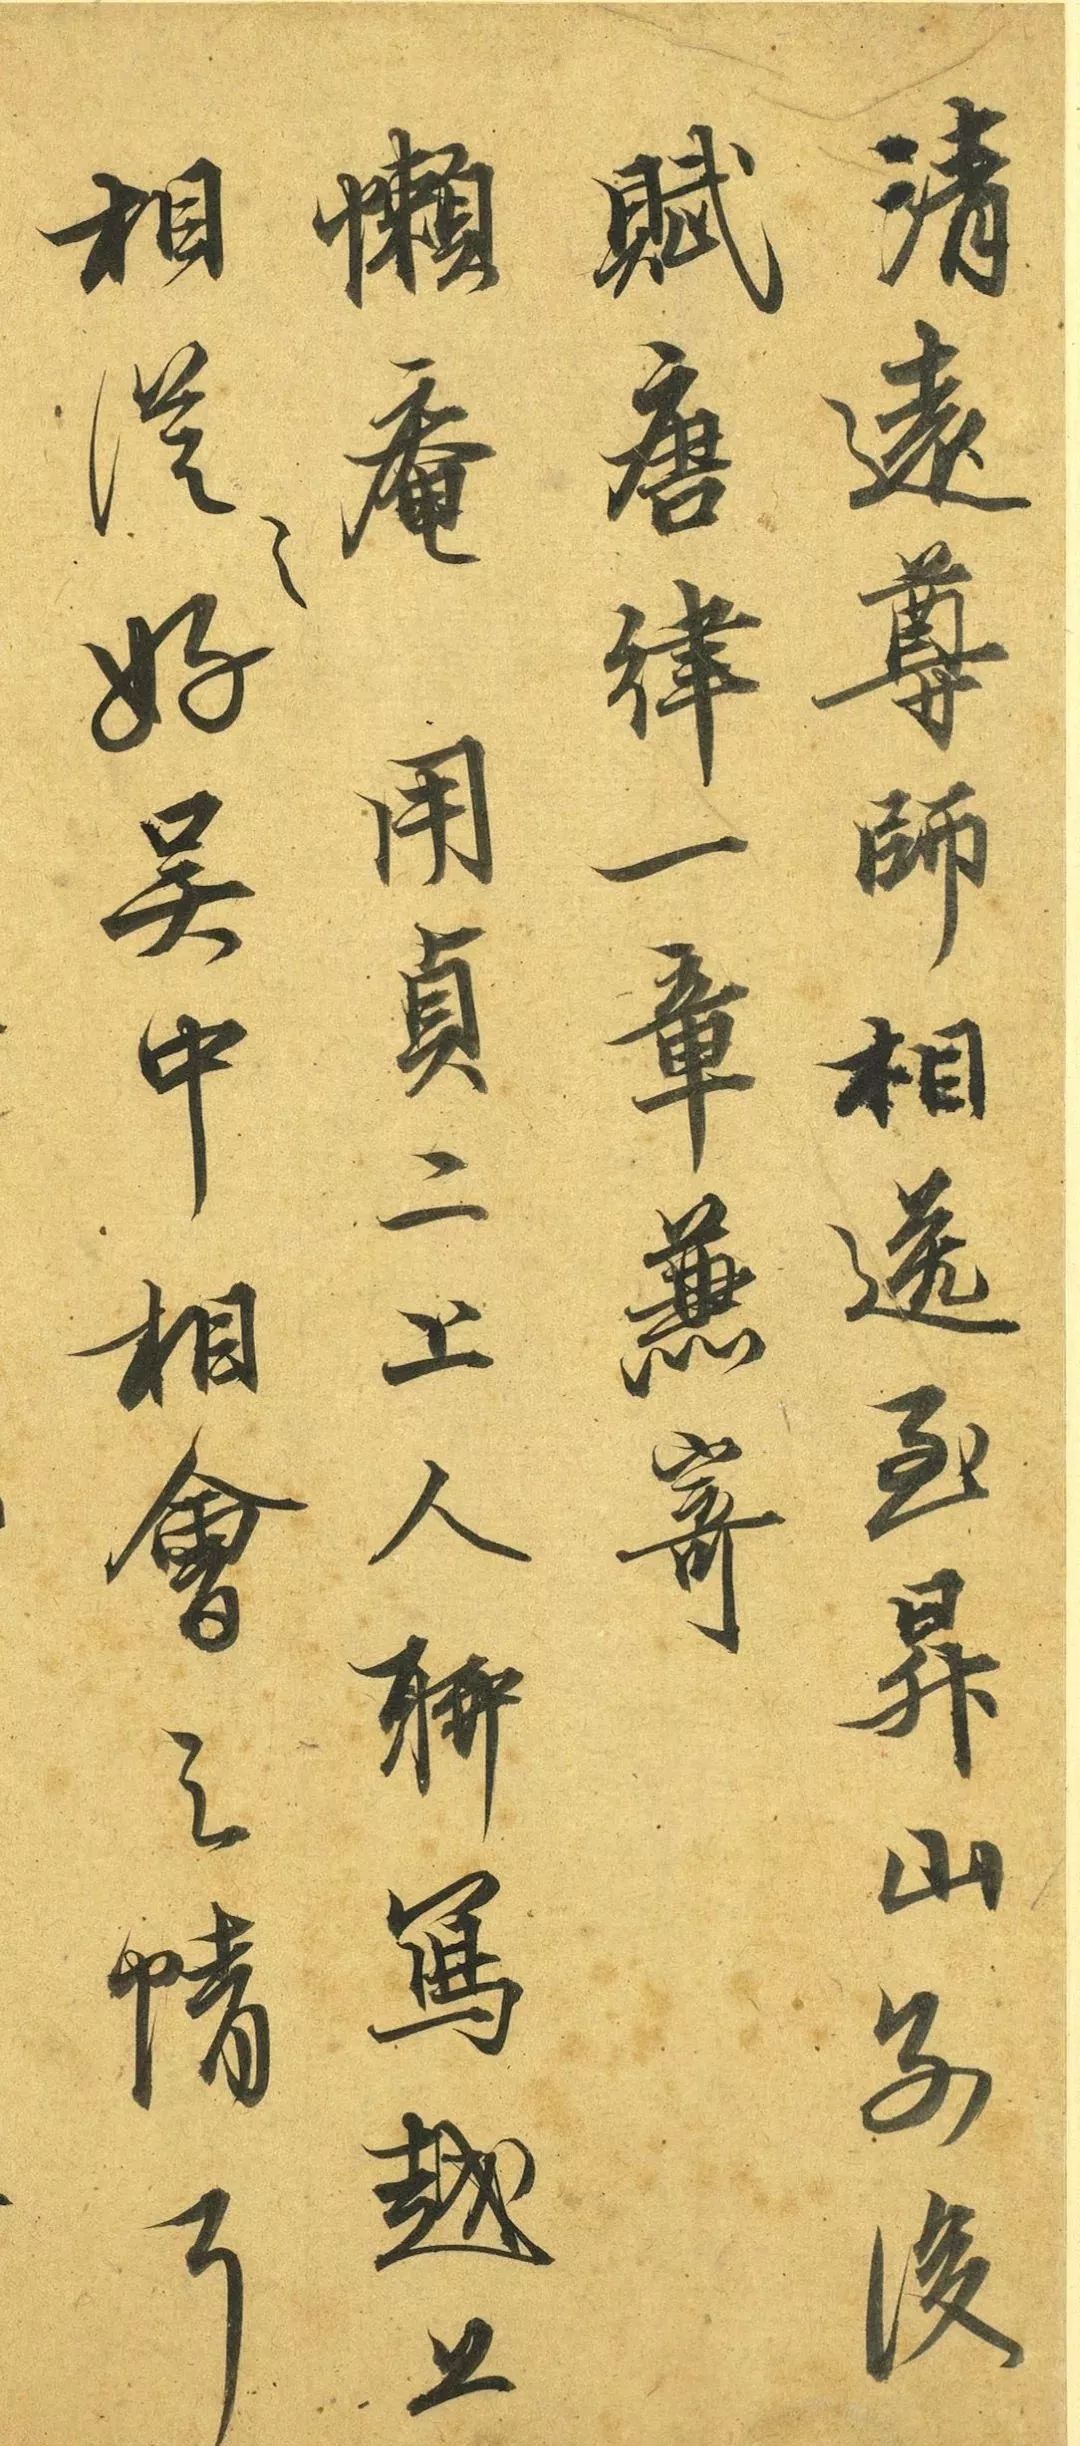 清遠尊師相送至昇山別後
賦唐律一章兼寄
懶庵用貞二上人聊寫越上
相從之好吳中相會之情耳